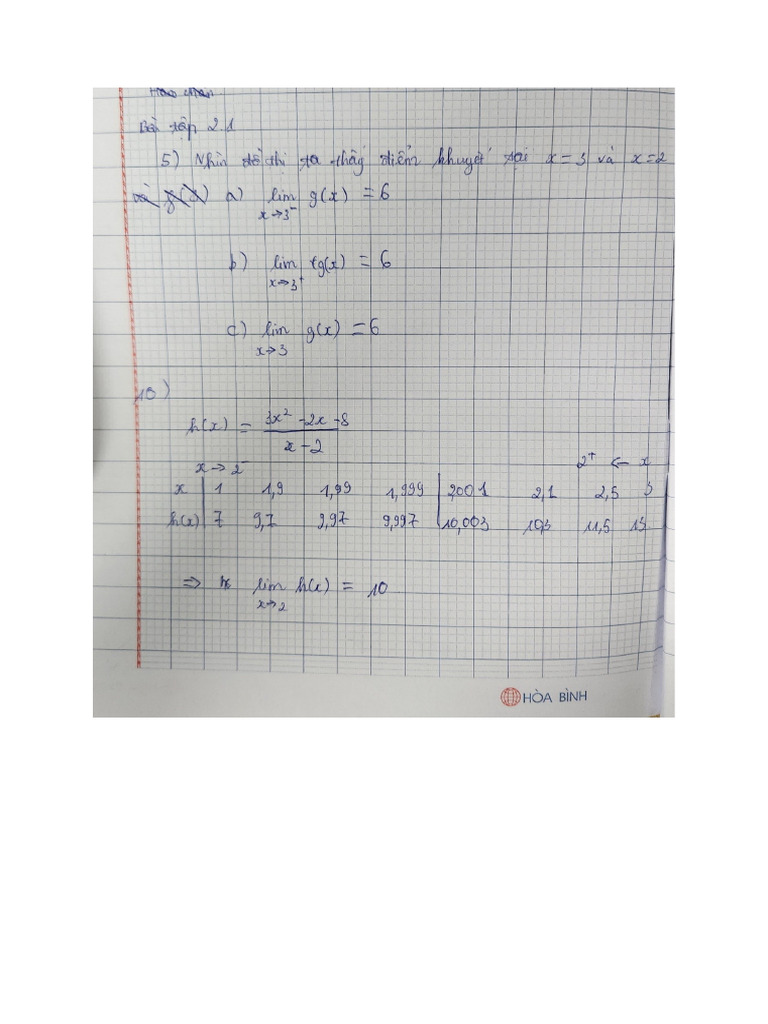 Bài tập 2.1
5) Nhìn đồ thị ta thấy điểm khuyết tại x = 3 và x = 2
và g(x) a) lim g(x) = 6
x→3⁻
b) lim g(x) = 6
x→3⁺
c) lim g(x) = 6
x→3
10)
h(x) = 3x² - 2x - 8
x - 2
x → 2⁻ 2⁺ ← x
x 1 1,9 1,99 1,999 2,001 2,1 2,5 3
h(x) 7 9,7 9,97 9,997 10,003 10,3 11,5 13
⇒ lim h(x) = 10
x→2
HÒA BÌNH